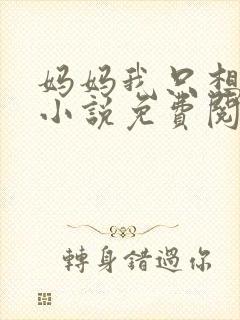 妈妈我只想
小说免费阅
轉身錯過你